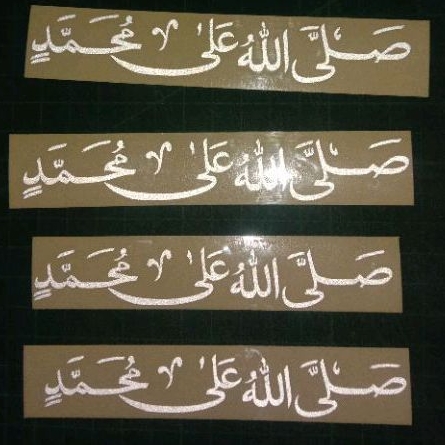 صَلَّى اللهُ عَلَى مُحَمَّدٍ
صَلَّى اللهُ عَلَى مُحَمَّدٍ
صَلَّى اللهُ عَلَى مُحَمَّدٍ
صَلَّى اللهُ عَلَى مُحَمَّدٍ